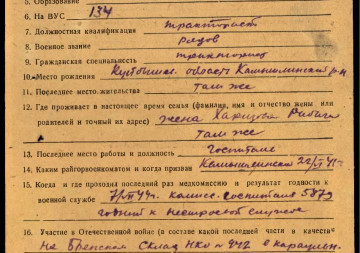 5. Образование
6. На ВУС 134
7. Должностная квалификация тракторист
8. Военное звание рядов
9. Гражданская специальность тракторист
10. Место рождения Куйбышев. область Кошкинский р-н
11. Последнее место жительства там же
12. Где проживает в настоящее время семья (фамилия, имя и отчество жены или
родителей и точный их адрес) жена
там же
13. Последнее место работы и должность госпиталь
14. Каким райгорвоенкоматом и когда призван
15. Когда и где проходил последний раз медкомиссию и результат годности к
военной службе комисс. госпиталь 5879
годный к нестроевой службе
16. Участие в Отечественной войне (в составе какой последней части и качестве
На Брянском склад НКО № 942 в караульн.